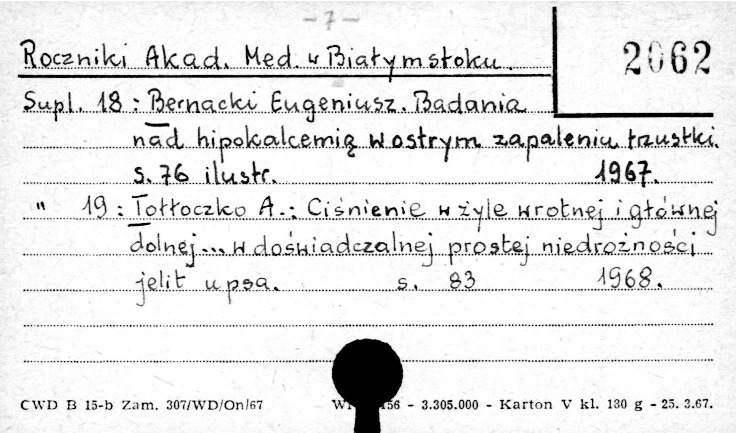 - 7 -
Roczniki Akad. Med. w Białymstoku. 2062
Supl. 18 : Bernacki Eugeniusz. Badania
nad hipokalcemią w ostrym zapaleniu trzustki.
s. 76 ilustr. 1967.
" 19 : Tołłoczko A.: Ciśnienie w żyle wrotnej i głównej
dolnej... w doświadczalnej prostej niedrożności
jelit u psa. s. 83 1968.
CWD B 15-b Zam. 307/WD/On/67 56 - 3.305.000 - Karton V kl. 180 g - 25. 3.67.